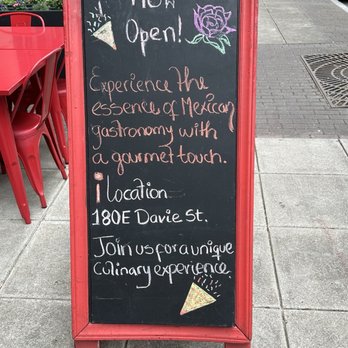 Now
Open!
Experience the
essence of Mexican
gastronomy with
a gourmet touch.
¡ Location
180E Davie St.
Join us for a unique
culinary experience